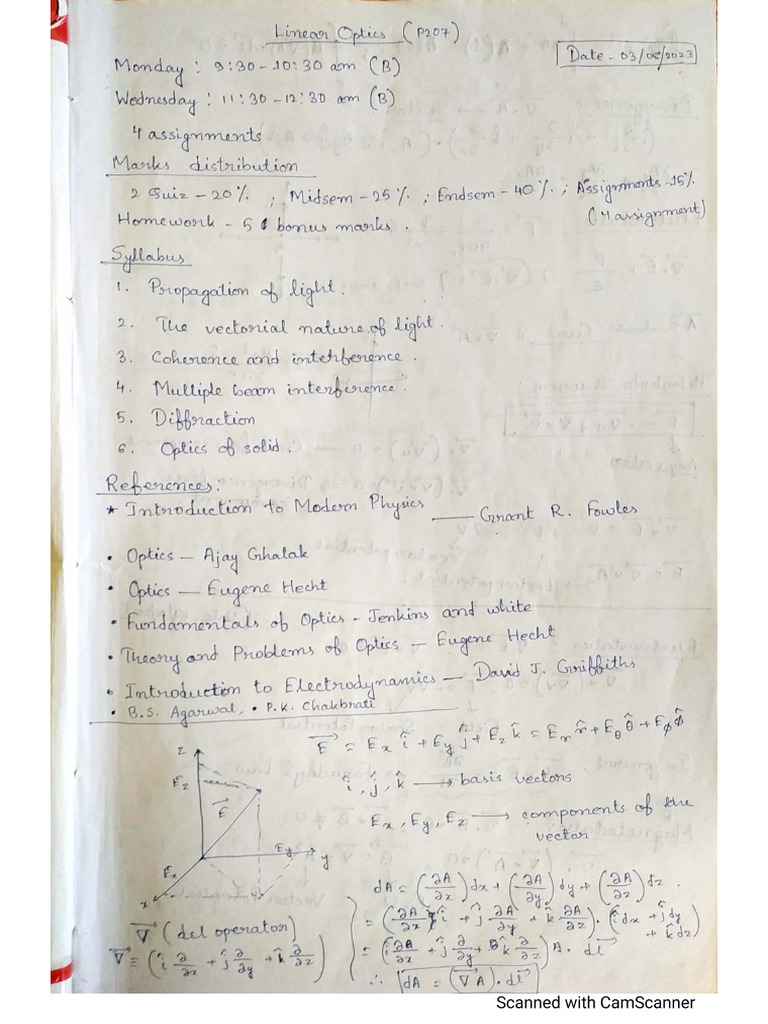 Linear Optics (P207)
Date - 03/08/2023
Monday : 9:30-10:30 am (B)
Wednesday : 11:30-12:30 am (B)
4 assignments
Marks distribution
2 Quiz - 20% ; Midsem - 25% ; Endsem - 40% ; Assignments - 15%
(4 assignment)
Homework - 5 bonus marks .
Syllabus
1. Propagation of light.
2. The vectorial nature of light.
3. Coherence and interference.
4. Multiple beam interference.
5. Diffraction
6. Optics of solid.
References:
* Introduction to Modern Physics — Grant R. Fowles
• Optics — Ajay Ghatak
• Optics — Eugene Hecht
• Fundamentals of Optics - Jenkins and white
• Theory and Problems of Optics — Eugene Hecht
• Introduction to Electrodynamics — David J. Griffiths
• B.S. Agarwal, • P.K. Chakbrati
E⃗ = Ex î + Ey ĵ + Ez k̂ = Er r̂ + Eθ θ̂ + Eϕ ϕ̂
î, ĵ, k̂ → basis vectors
Ex, Ey, Ez → components of the
vector
z
Ez
E⃗
Ey
y
Ex
x
∇⃗ (del operator)
∇⃗ ≡ (î ∂/∂x + ĵ ∂/∂y + k̂ ∂/∂z)
dA = (∂A/∂x)dx + (∂A/∂y)dy + (∂A/∂z)dz .
= (∂A/∂x î + ĵ ∂A/∂y + k̂ ∂A/∂z) . (î dx + ĵ dy
+ k̂ dz)
= (î ∂/∂x + ĵ ∂/∂y + k̂ ∂/∂z) A . dl⃗
∴ dA = (∇⃗A) . dl⃗
Scanned with CamScanner